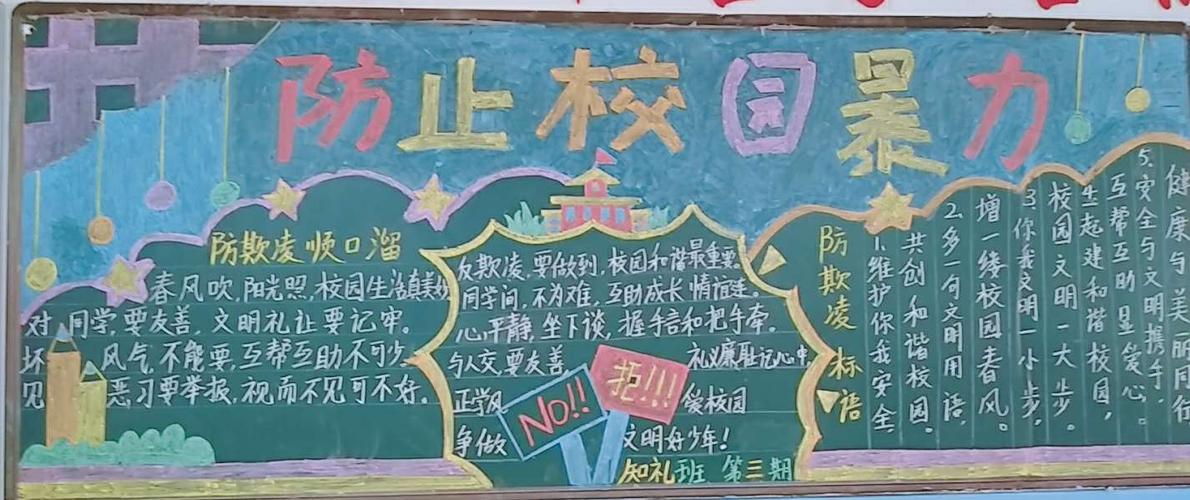 防止校园暴力
防欺凌顺口溜
春风吹,阳光照,校园生活真美妙
对同学,要友善,文明礼让要记牢。
坏风气,不能要,互帮互助不可少
见恶习要举报,视而不见可不好。
反欺凌,要做到,校园和谐最重要。
同学间,不为难,互助成长情谊连。
心平静,坐下谈,握手言和把手牵。
与人交,要友善 礼义廉耻记心中
正学风 爱校园
争做 文明好少年!
NO!!
拒!!!
知礼班 第三期
防欺凌标语
1.维护你我安全,
共创和谐校园。
2.多一句文明用语,
增一缕校园春风。
3.你我文明一小步,
校园文明一大步。
生起建和谐校园,
互帮互助显爱心。
5.安全与文明携手,
健康与美丽同行